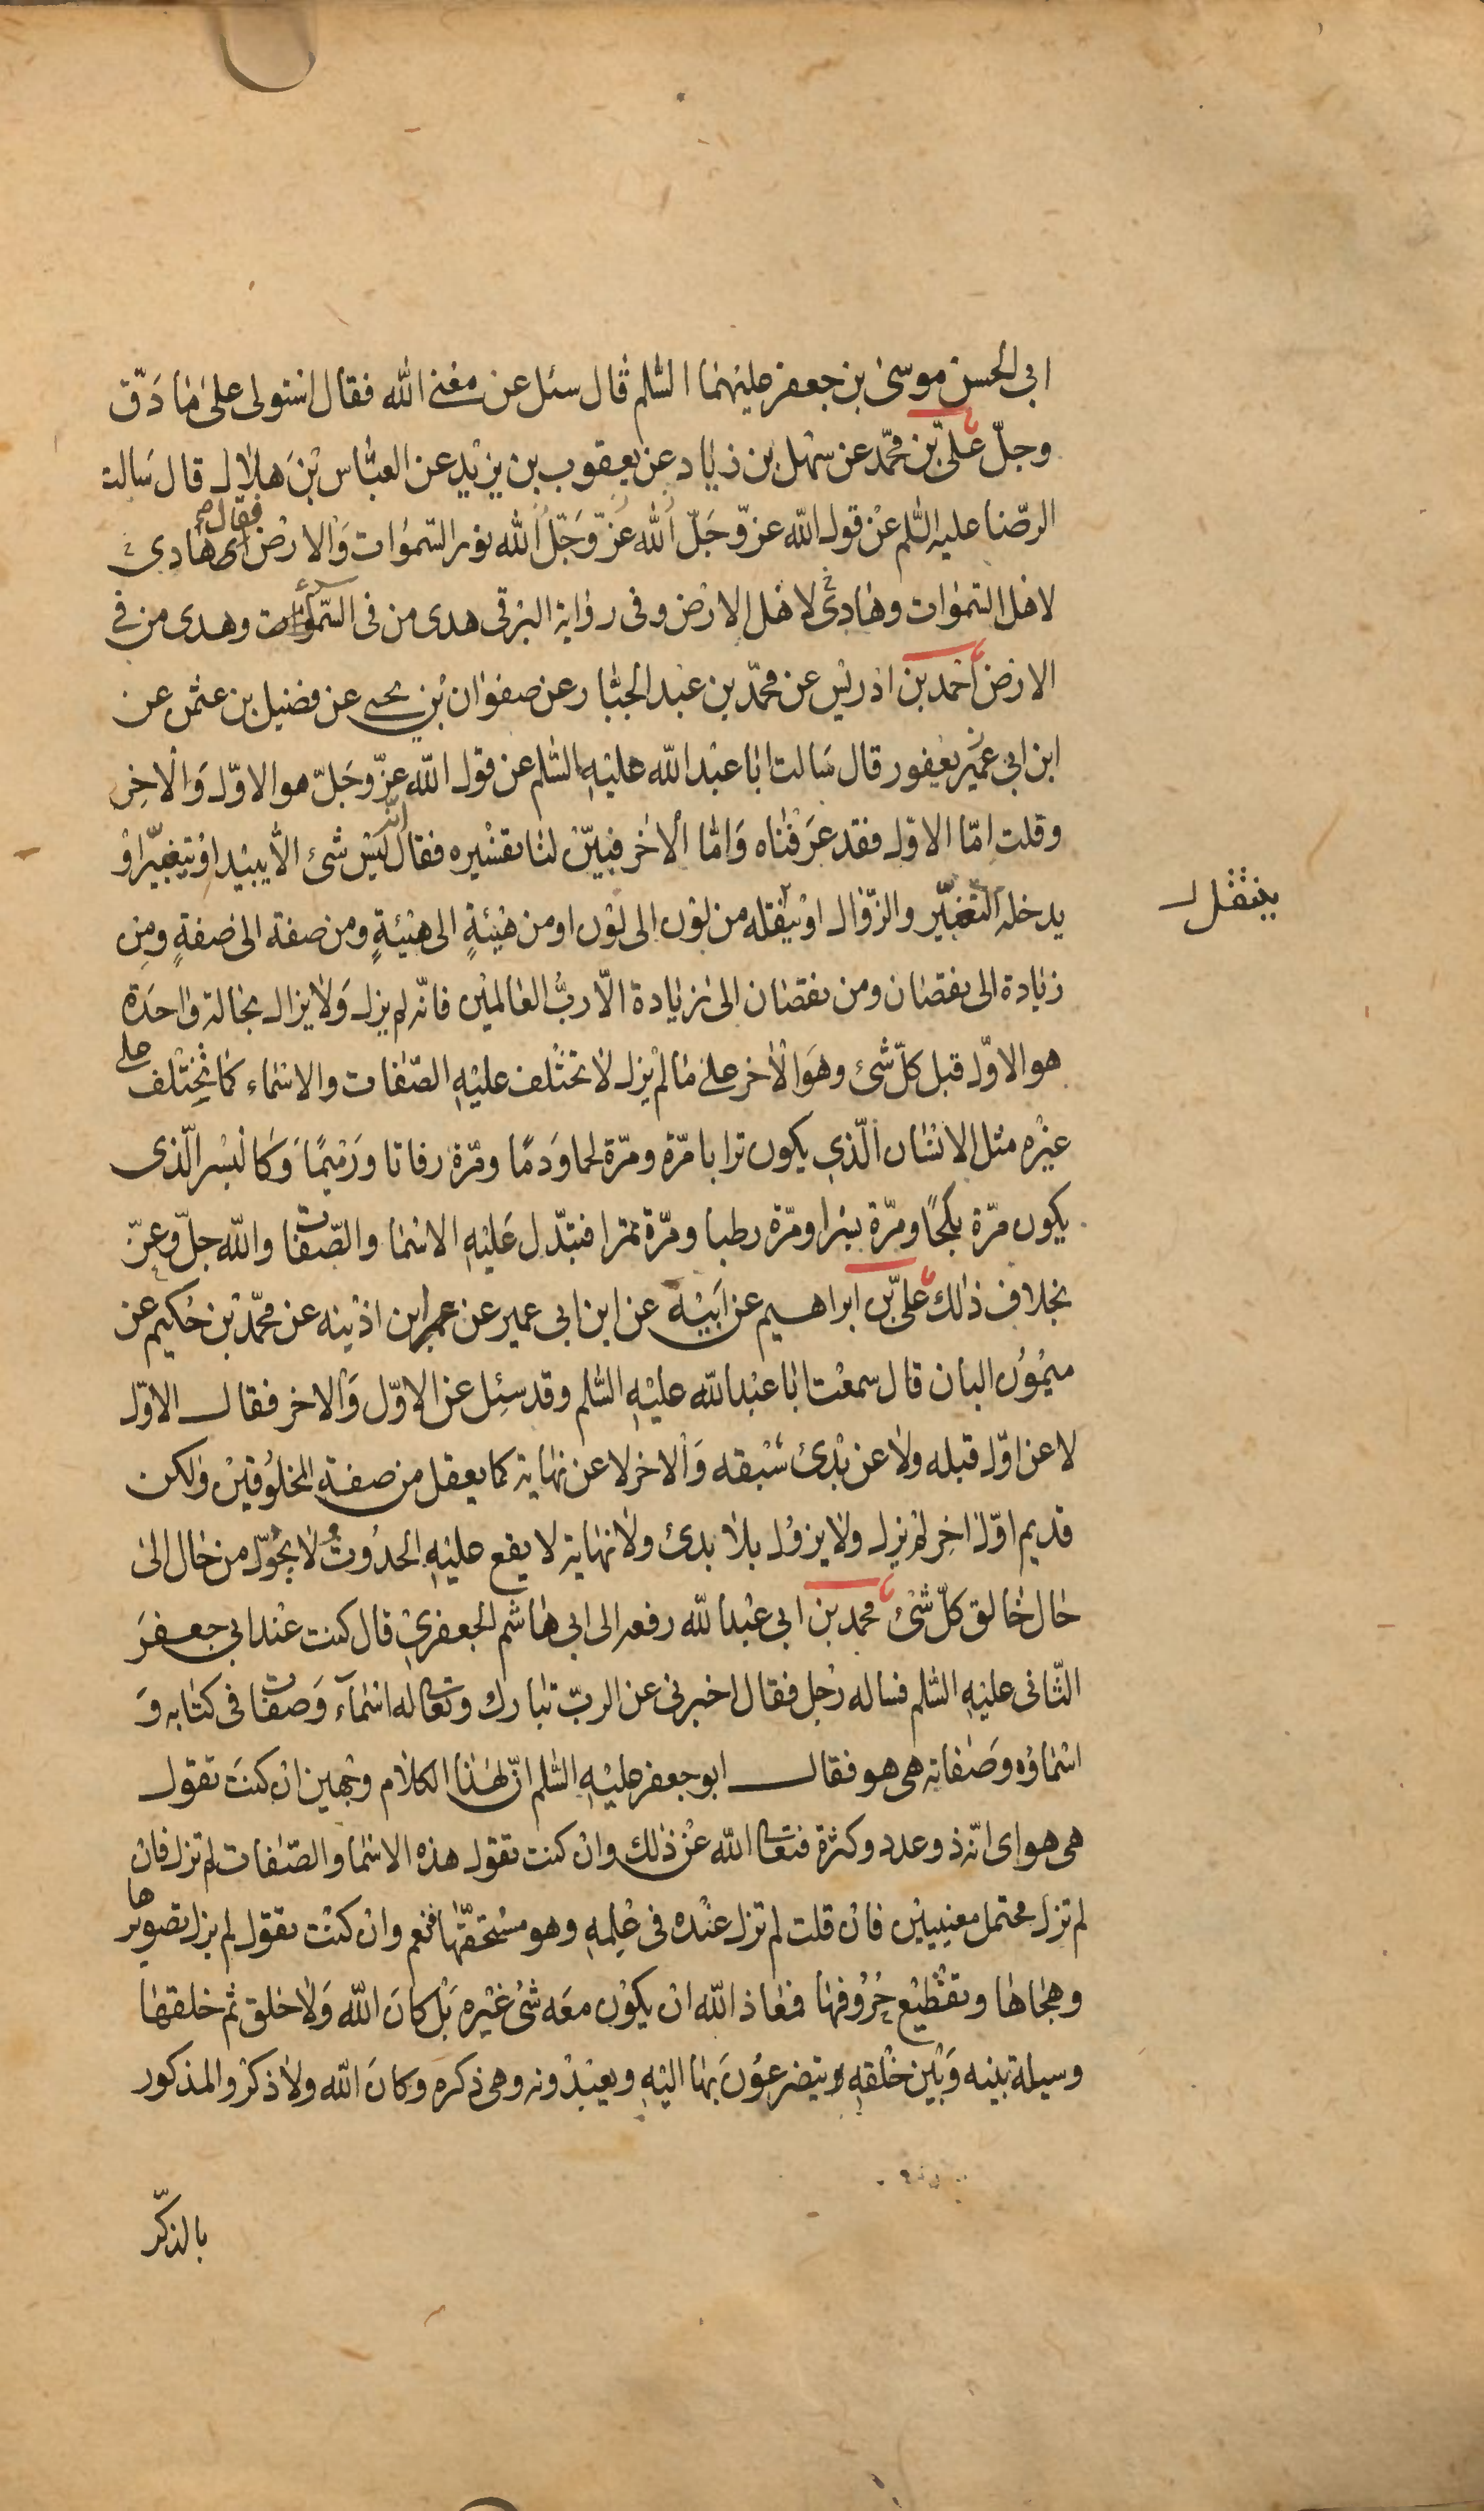 ابى الحسن موسى بن جعفر عليهما السّلم قال سئل عن معنى الله فقال استولى على ما دَقّ
وجلّ علىّ بن محمّد عن سهل بن زياد عن يعقوب بن يزيد عن العبّاس بن هلال قال سَالت
الرضا عليه السّلم عن قول الله عزّ وجَلّ الله عَزّ وَجَلّ الله نور السّموات وَالارض فقال اى هادى
لاهل السّموات وهادى لاهل الارض وفى رواية البرقى هدى من فى السّموات وهدى من فى
الارض احمد بن ادريس عن محمّد بن عبد الجبّار عن صفوان بن يحيى عن فضيل بن عثمن عن
ابن ابى عمير يعفور قال سَالت ابا عبد الله عليهِ السّلم عن قول الله عزّ وجَلّ هو الاوّل وَالاخِر
وقلت امّا الاوّل فقد عَرَفناه وَامّا الاخر فبيّن لنا تفسيره فقال انّه ليس شئ الّا يبيد او يتغيّر اوْ
يدخله التغيّر والزّوال او ينقله من لون الى لون او من هيئةٍ الى هيئةٍ ومن صفة الى صفةٍ ومِن
ينتقل
زيادة الى نقصان ومن نقصان الى زيادة الّا ربُّ العالمين فانّه لم يزل وَلا يزال بحالة واحدة
هو الاوّل قبل كلّ شئ وهوَ الاخر على ما لم يزل لا تختلف عليهِ الصّفات والاسماء كما تختلف على
غيره مثل الانسان الّذى يكون ترابا مرّة ومرّة لحما وَدمًا ومرّة رفاتا ورَميمًا وَكالبسر الّذى
يكون مرّة بلحًا ومرّة بسرا ومرّة رطبا ومرّة تمرا فتبّدل عَليهِ الاسما والصّفات والله جلّ وعزّ
بخلاف ذلك علىّ بن ابراهيم عن ابيه عن ابن ابى عمير عن عمر ابن اذينه عن محمّد بن حكيم عن
ميمُون البان قال سمعت ابا عبد الله عليهِ السّلم وقد سئِل عن الاوّل وَالاخر فقال الاوّل
لا عن اوّل قبله ولا عن بدئ سَبقه وَالاخر لا عن نهاية كما يعقل من صفة المخلوقين ولكن
قديم اوّل اخِر لم يزل ولا يزول بلا بدئ ولا نهاية لا يقع عليهِ الحدُوثُ لا يحُوّل من حال الى
حال خالق كلّ شئ محمد بن ابى عبد الله رفعه الى ابى هاشم الجعفرى قال كنت عند ابى جعفر
الثّانى عليهِ السّلم فساله رجل فقال اخبرنى عن الربّ تبارك وتعالى له اسمآء وَصفات فى كتابه وَ
اسماؤه وصَفاته هى هو فقال ابو جعفر عليهِ السّلم انّ لهذا الكلام وجهين ان كنتَ تقول
هى هو اى انّه ذو عدد وكثرة فتعالى الله عن ذلك وان كنت تقول هذه الاسما والصّفات لم تزل فانْ
لم تزل محتمل معنيين فان قلت لم تزل عنده فى علمهِ وهو مستحقّها فنعم وان كنت تقول لم يزل تصويرها
وهجاها وتقطيع حُرُوفها فمعاذ الله ان يكون معَه شئ غيره بَل كانَ الله وَلا خلق ثم خلقها
وسيلة بينه وَبين خلقهِ ويتضرعُونَ بها اليهِ ويعبدونه وهى ذكره وكانَ الله ولا ذكر والمذكور
بالذكر